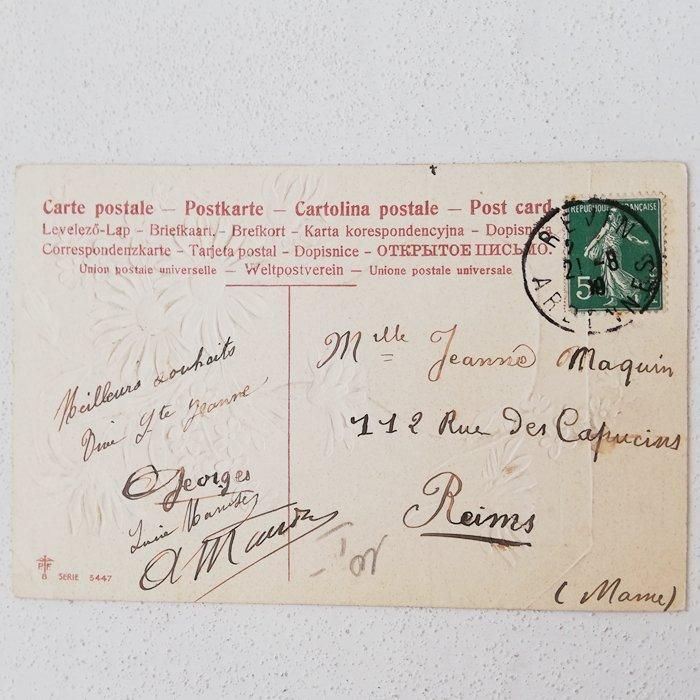 Carte postale – Postkarte – Cartolina postale – Post card
Levelező-Lap – Briefkaart – Brefkort – Karta korespondencyjna – Dopisnica
Correspondenzkarte – Tarjeta postal – Dopisnice – ОТКРЫТОЕ ПИСЬМО.
Union postale universelle – Weltpostverein – Unione postale universale
REPUBLIQUE FRANÇAISE
5
REVIN
21 -8
ARDENNES
Mlle Jeanne Maquin
112 Rue des Capucins
Reims
(Marne)
Meilleurs souhaits
Vive Ste Jeanne
Georges
P.F.
B
SERIE 5447